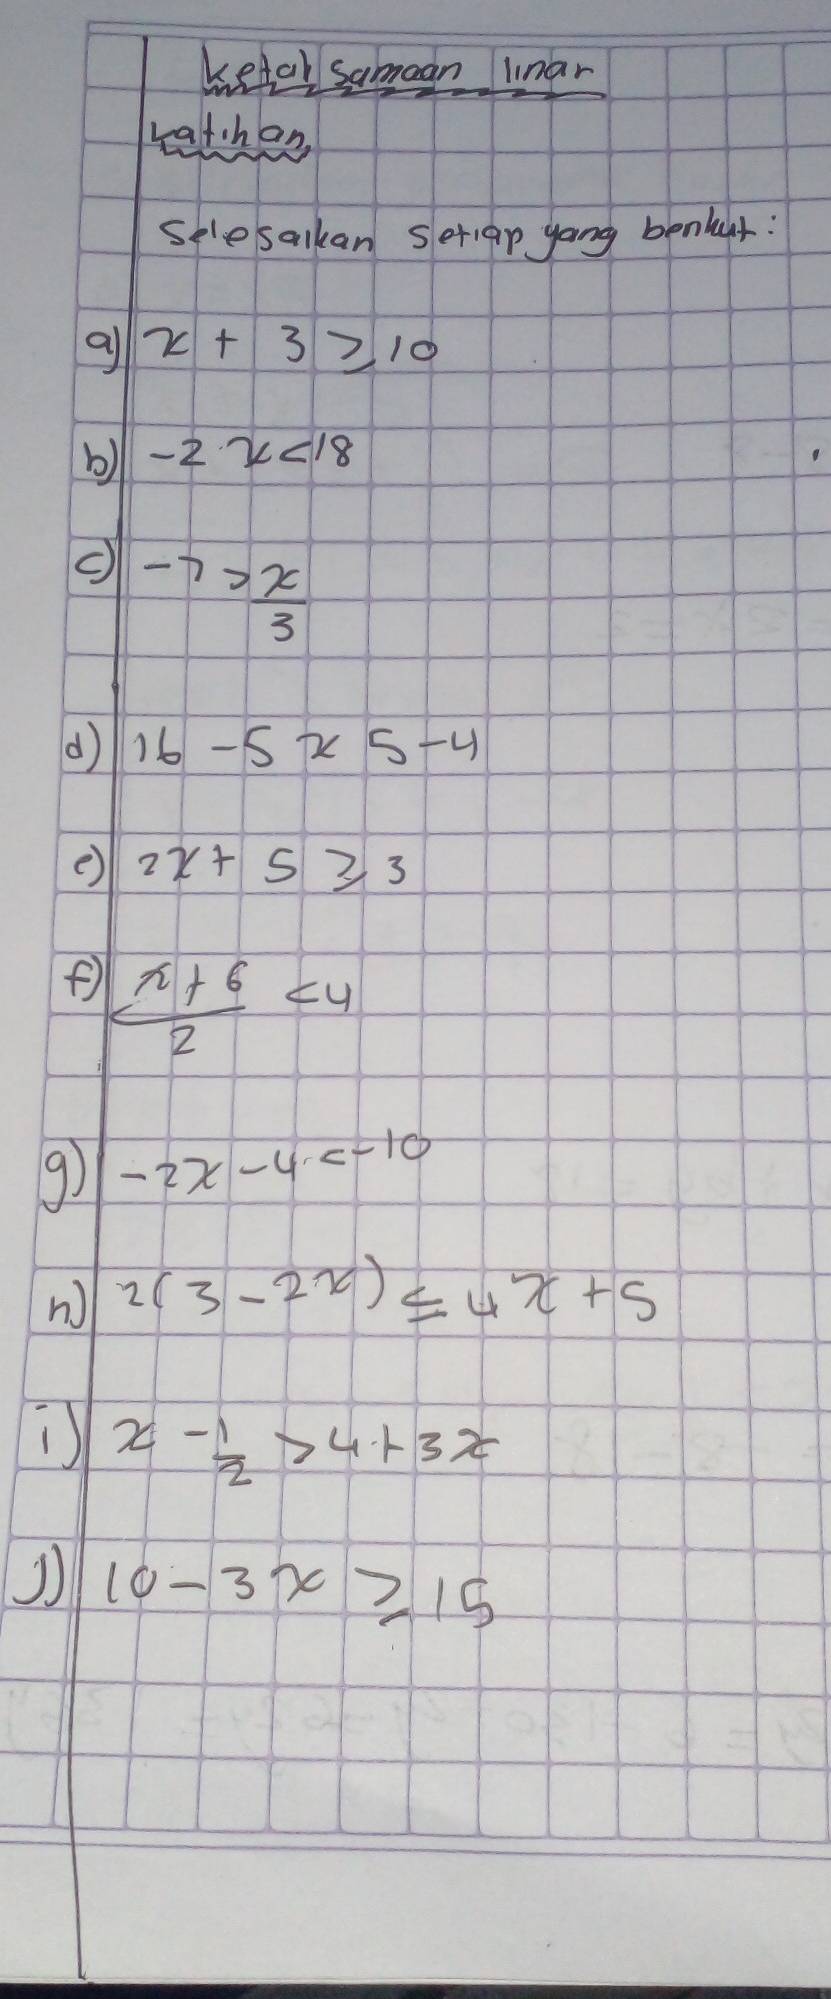 Ketak samaan linar
Latihan
Selesaikan setiap yang berikut:
a) x + 3 ≥ 10
b) -2x < 18
c) -7 > x/3
d) 16 - 5 x 5 - 4
e) 2x + 5 ≥ 3
f) (x + 6)/2 < 4
g) -2x - 4 < -10
h) 2(3 - 2x) ≤ 4x + 5
i) x - 1/2 > 4 + 3x
j) 10 - 3x ≥ 15